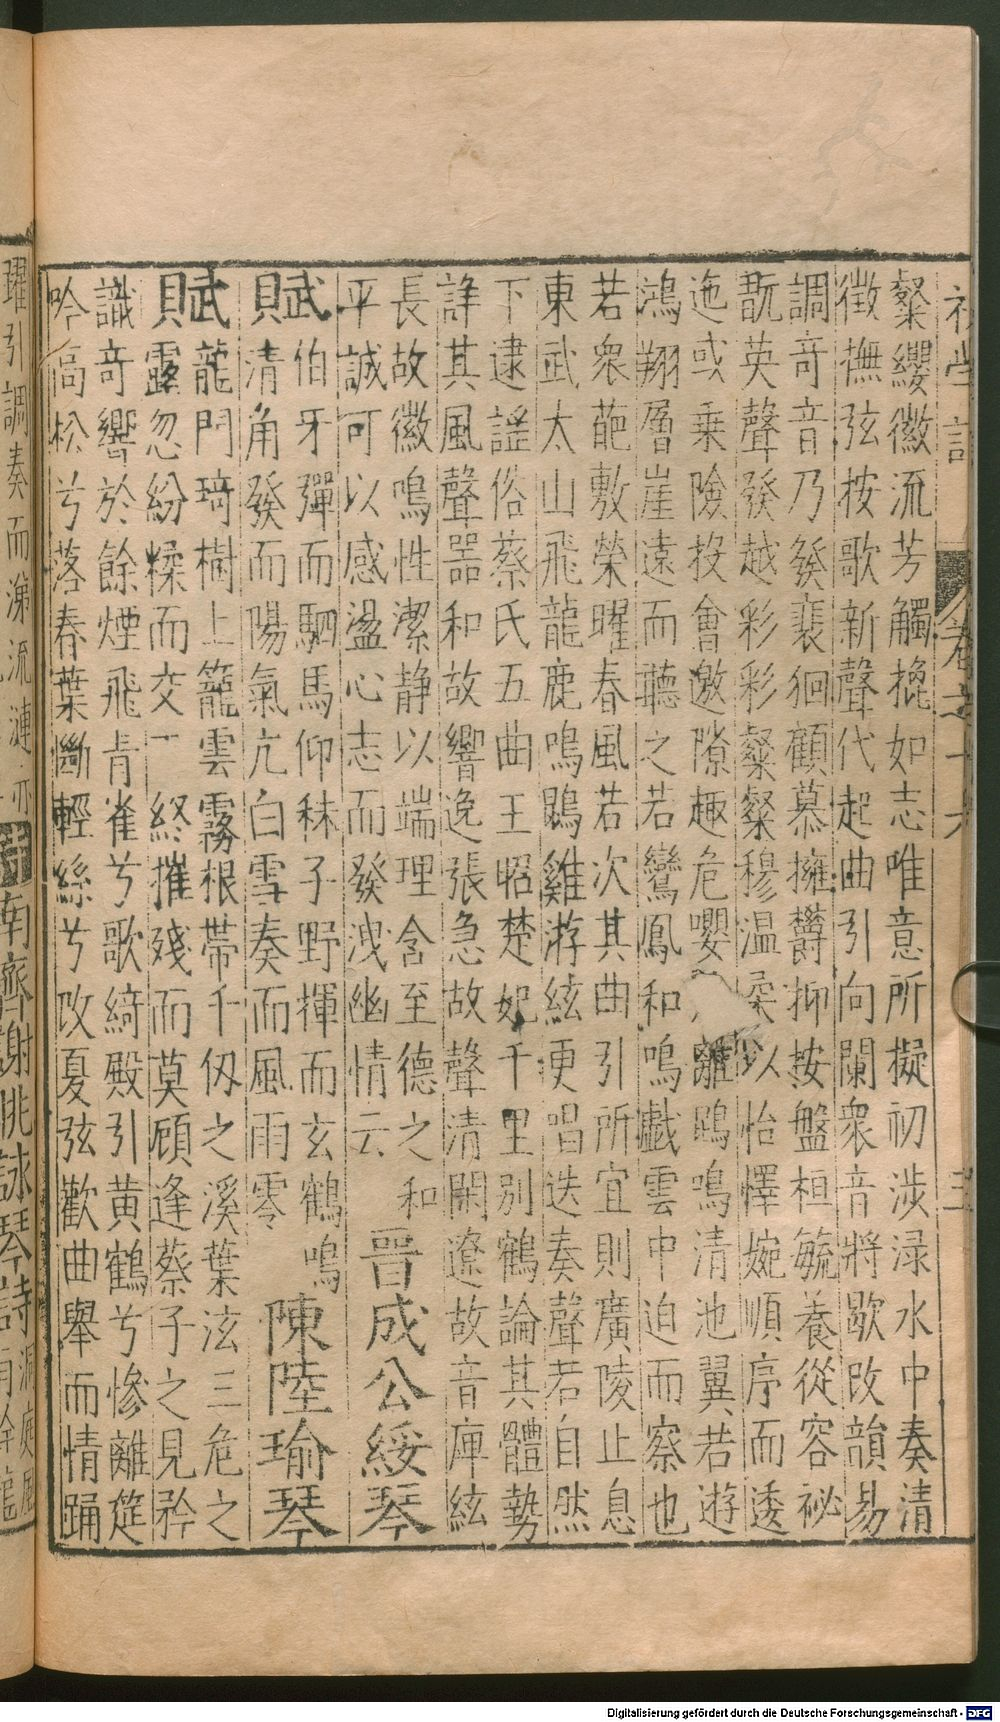 初學記 卷之十六 三
粲纓徽流芳觸摠如志唯意所擬初涉淥水中奏清
徵撫弦按歌新聲代起曲引向闌衆音將歇改韻易
調奇音乃發裵徊顧慕擁欝抑按盤桓毓養從容祕
翫英聲發越彩彩粲粲穆溫柔以怡懌婉順序而逶
迤或乗險投會邀隙趣危嚶離鵾鳴清池翼若遊
鴻翔層崖遠而聽之若鸞鳳和鳴戲雲中迫而察也
若衆葩敷榮曜春風若次其曲引所宜則廣陵止息
東武太山飛龍鹿鳴鵾雞游絃更唱迭奏聲若自然
下逮謡俗蔡氏五曲王昭楚妃千里別鶴論其體勢
詳其風聲器和故響逸張急故聲清閒遼故音庳絃
長故徽鳴性潔静以端理含至德之和
平誠可以感盪心志而發洩幽情云 晉成公綏琴
賦 伯牙彈而駟馬仰秣子野揮而玄鶴鳴
清角發而陽氣亢白雪奏而風雨零 陳陸瑜琴
賦 龍門琦樹上籠雲霧根帶千仭之溪葉泫三危之
露忽紛糅而交 終摧殘而莫顧逢蔡子之見矜
識奇響於餘煙飛青雀兮歌綺殿引黄鶴兮慘離筵
吟高松兮落春葉斷輕絲兮改夏弦歡曲舉而情踊
躍引調奏而涕流漣 詩 南齊謝朓詠琴詩 洞庭風
雨幹龍
Digitalisierung gefördert durch die Deutsche Forschungsgemeinschaft - DFG